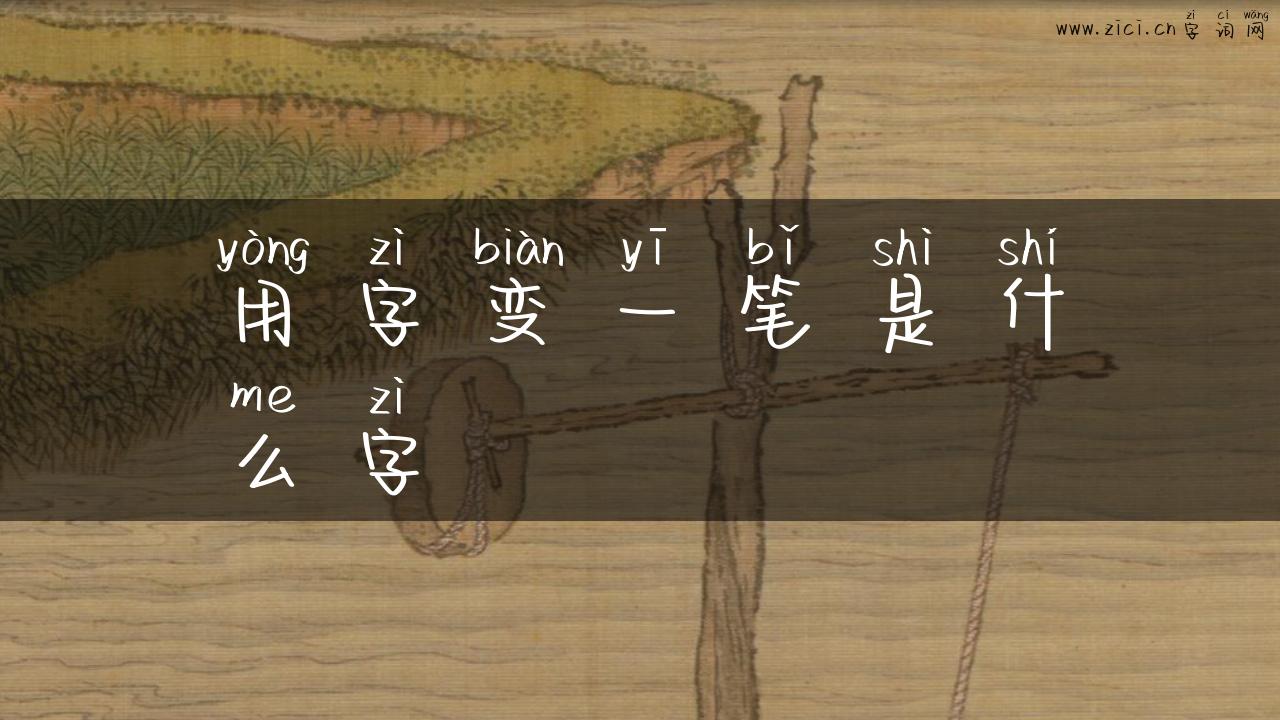 zì cí wǎng
www.zici.cn字词网
yòng zì biàn yī bǐ shì shí
用字变一笔是什
me zì
么字